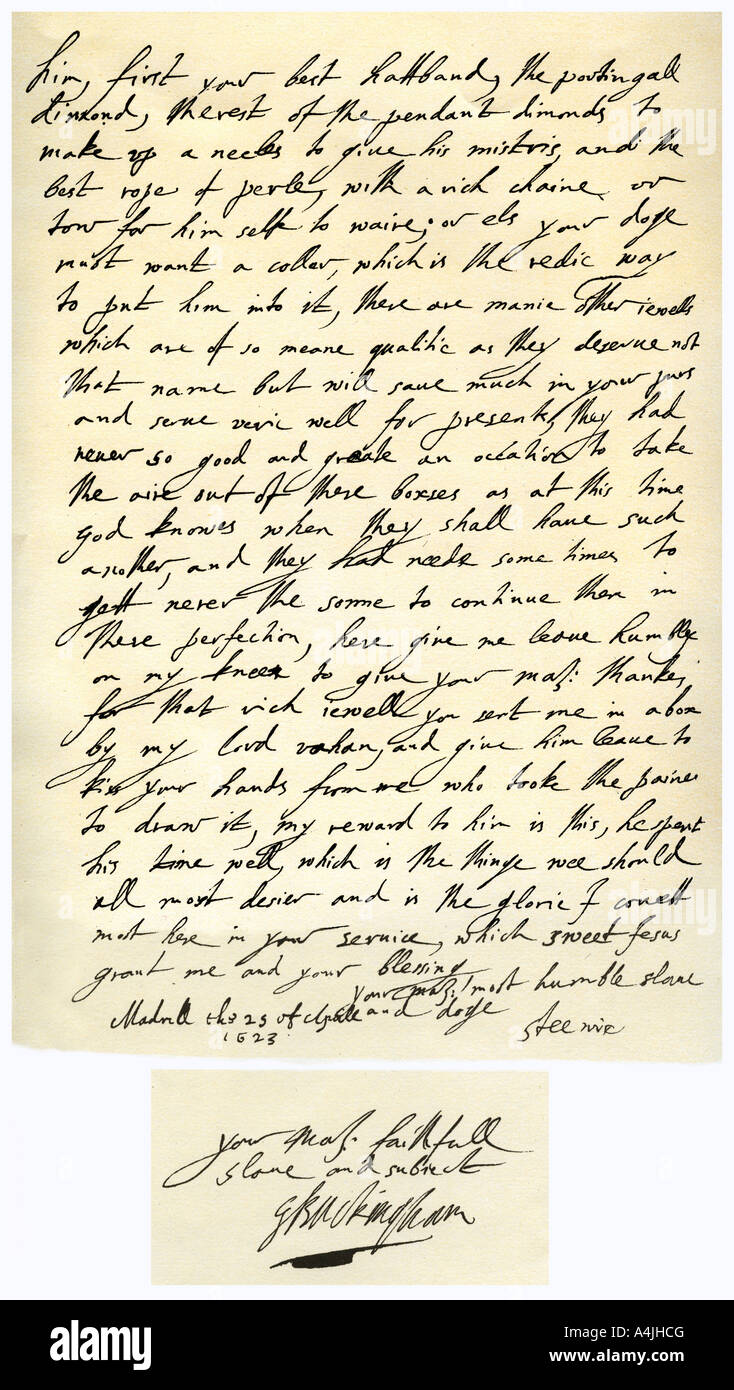 him, first your best hattband, the portingall
dimond, the rest of the pendant dimonds to
make up a necles to give his mistris, and the
best rope of perle, with a rich chaine or
tow for him self to waire, or els your doge
must want a coller, which is the redie way
to put him into it, there are manie other iewells
which are of so meane qualitie as they deserue not
that name but will saue much in your purs
and serue verie well for presents, they had
never so good and greate an occation to take
the aire out of there boxses as at this time
god knowes when they shall haue such
another, and they had neede some times to
gett never the sonne to continue them in
there perfection, here give me leaue humblie
on my knees to give your ma:tie thankes
for that rich iewell you sent me in a box
by my lord vahan, and give him leaue to
kiss your hands from me who tooke the paines
to draw it, my reward to him is this, he spent
his time well, which is the thinge wee should
all most desier and is the glorie I couett
most here in your service, which sweet Jesus
grant me and your blessing
your ma:ties most humble slaue
Madrill the 25 of Aprill and doge
1623 Steenie
your ma:ties faithfull
slaue and subiect
GBuckingham
alamy
Image ID: A4JHCG
www.alamy.com